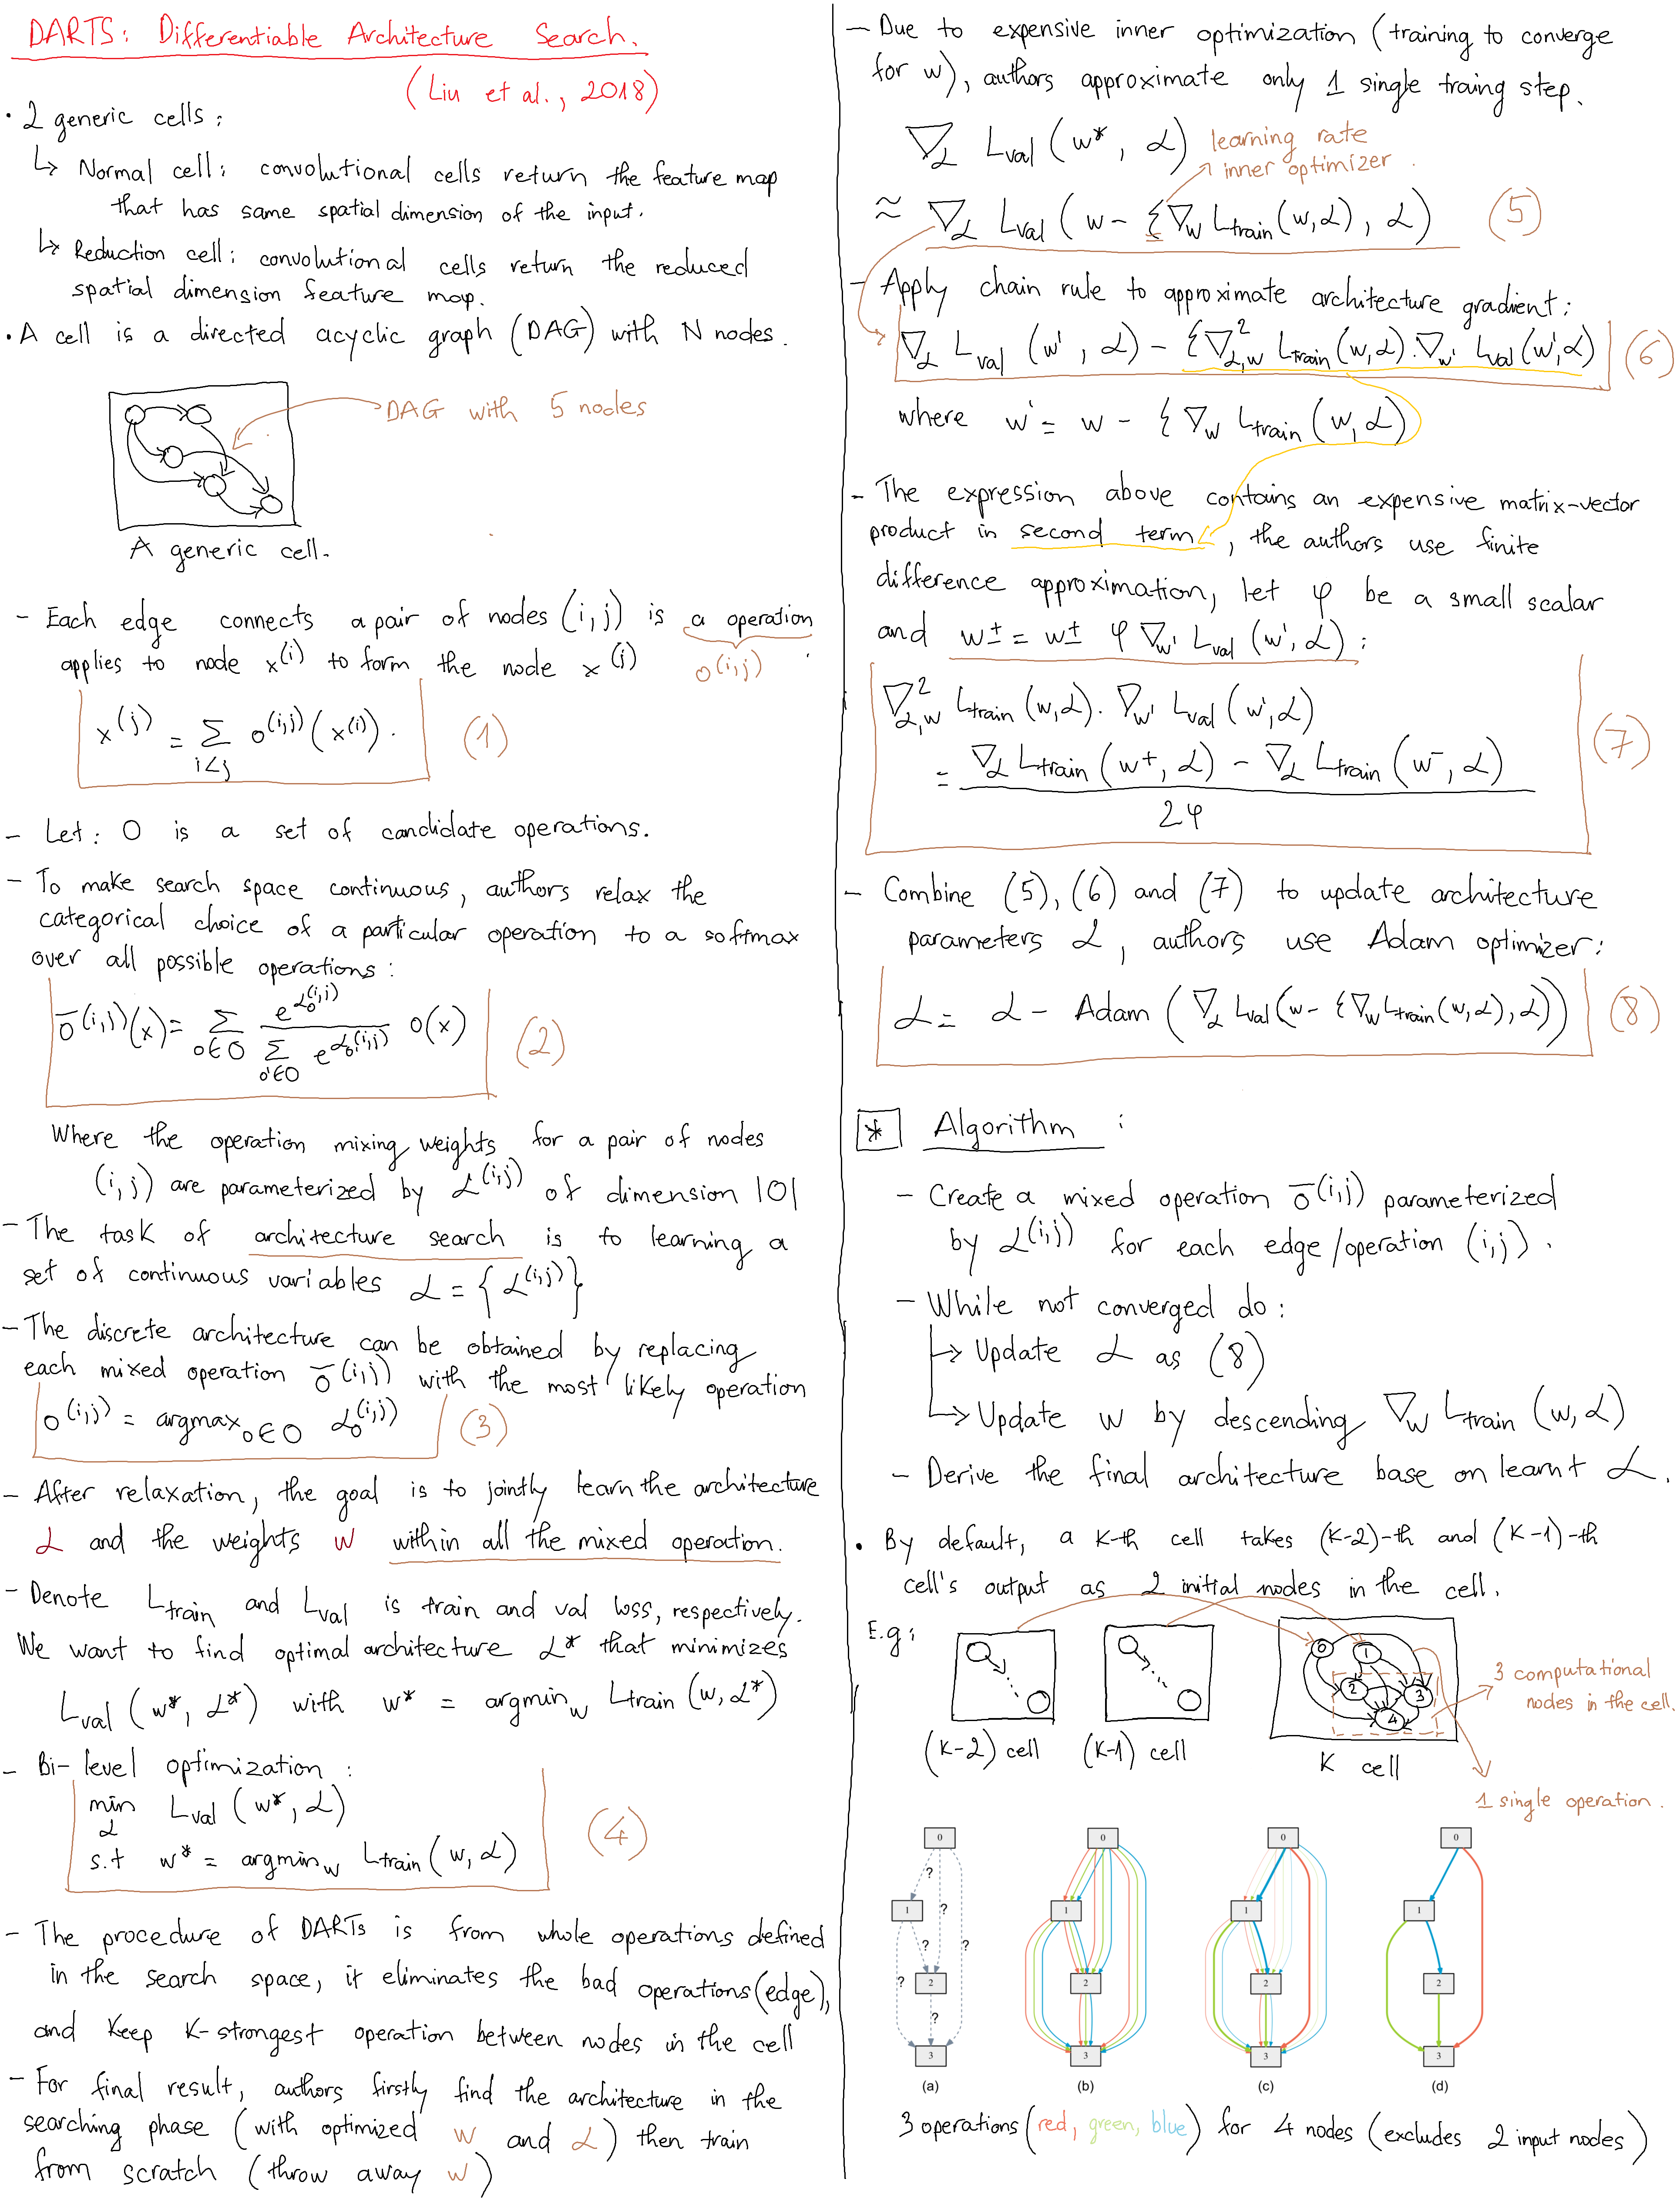 DARTS: Differentiable Architecture Search.
(Liu et al., 2018)
• 2 generic cells:
↳ Normal cell: convolutional cells return the feature map
that has same spatial dimension of the input.
↳ Reduction cell: convolutional cells return the reduced
spatial dimension feature map.
• A cell is a directed acyclic graph (DAG) with N nodes.
DAG with 5 nodes
A generic cell.
- Each edge connects a pair of nodes (i,j) is a operation
applies to node x^(i) to form the node x^(j) o^(i,j)
x^(j) = Σ_{i<j} o^(i,j)(x^(i)). (1)
- Let: O is a set of candidate operations.
- To make search space continuous, authors relax the
categorical choice of a particular operation to a softmax
over all possible operations:
ō^(i,j)(x) = Σ_{o∈O} e^{α_o^(i,j)} / Σ_{o'∈O} e^{α_o'^(i,j)} o(x) (2)
Where the operation mixing weights for a pair of nodes
(i,j) are parameterized by α^(i,j) of dimension |O|
- The task of architecture search is to learning a
set of continuous variables α = {α^(i,j)}
- The discrete architecture can be obtained by replacing
each mixed operation ō^(i,j) with the most likely operation
o^(i,j) = argmax_{o∈O} α_o^(i,j) (3)
- After relaxation, the goal is to jointly learn the architecture
α and the weights w within all the mixed operation.
- Denote L_train and L_val is train and val loss, respectively.
We want to find optimal architecture α* that minimizes
L_val (w*, α*) with w* = argmin_w L_train (w, α*)
- Bi-level optimization:
min_α L_val (w*, α)
s.t w* = argmin_w L_train (w, α) (4)
- The procedure of DARTs is from whole operations defined
in the search space, it eliminates the bad operations(edge),
and keep K-strongest operation between nodes in the cell
- For final result, authors firstly find the architecture in the
searching phase (with optimized w and α) then train
from scratch (throw away w)
- Due to expensive inner optimization (training to converge
for w), authors approximate only 1 single traing step.
∇_α L_val (w*, α) learning rate
inner optimizer.
≈ ∇_α L_val (w - ξ∇_w L_train (w,α), α) (5)
- Apply chain rule to approximate architecture gradient:
∇_α L_val (w', α) - ξ∇²_{α,w} L_train (w,α).∇_w' L_val (w',α) (6)
where w' = w - ξ∇_w L_train (w,α)
- The expression above contains an expensive matrix-vector
product in second term, the authors use finite
difference approximation, let φ be a small scalar
and w± = w ± φ∇_w' L_val (w', α):
∇²_{α,w} L_train (w,α). ∇_w' L_val (w',α)
= ∇_α L_train (w⁺, α) - ∇_α L_train (w⁻, α) (7)
2φ
- Combine (5), (6) and (7) to update architecture
parameters α, authors use Adam optimizer:
α = α - Adam (∇_α L_val (w - ξ∇_w L_train (w,α), α)) (8)
* Algorithm :
- Create a mixed operation ō^(i,j) parameterized
by α^(i,j) for each edge/operation (i,j).
- While not converged do:
↳ Update α as (8)
↳ Update w by descending ∇_w L_train (w,α)
- Derive the final architecture base on learnt α.
• By default, a K-th cell takes (K-2)-th and (K-1)-th
cell's output as 2 initial nodes in the cell.
E.g:
0 1
2 3
4
3 computational
nodes in the cell.
(K-2) cell (K-1) cell K cell
1 single operation.
0 0 0 0
?
1 ? 1 1 1
? ?
? 2 2 2 2
?
3 3 3 3
(a) (b) (c) (d)
3 operations (red, green, blue) for 4 nodes (excludes 2 input nodes)